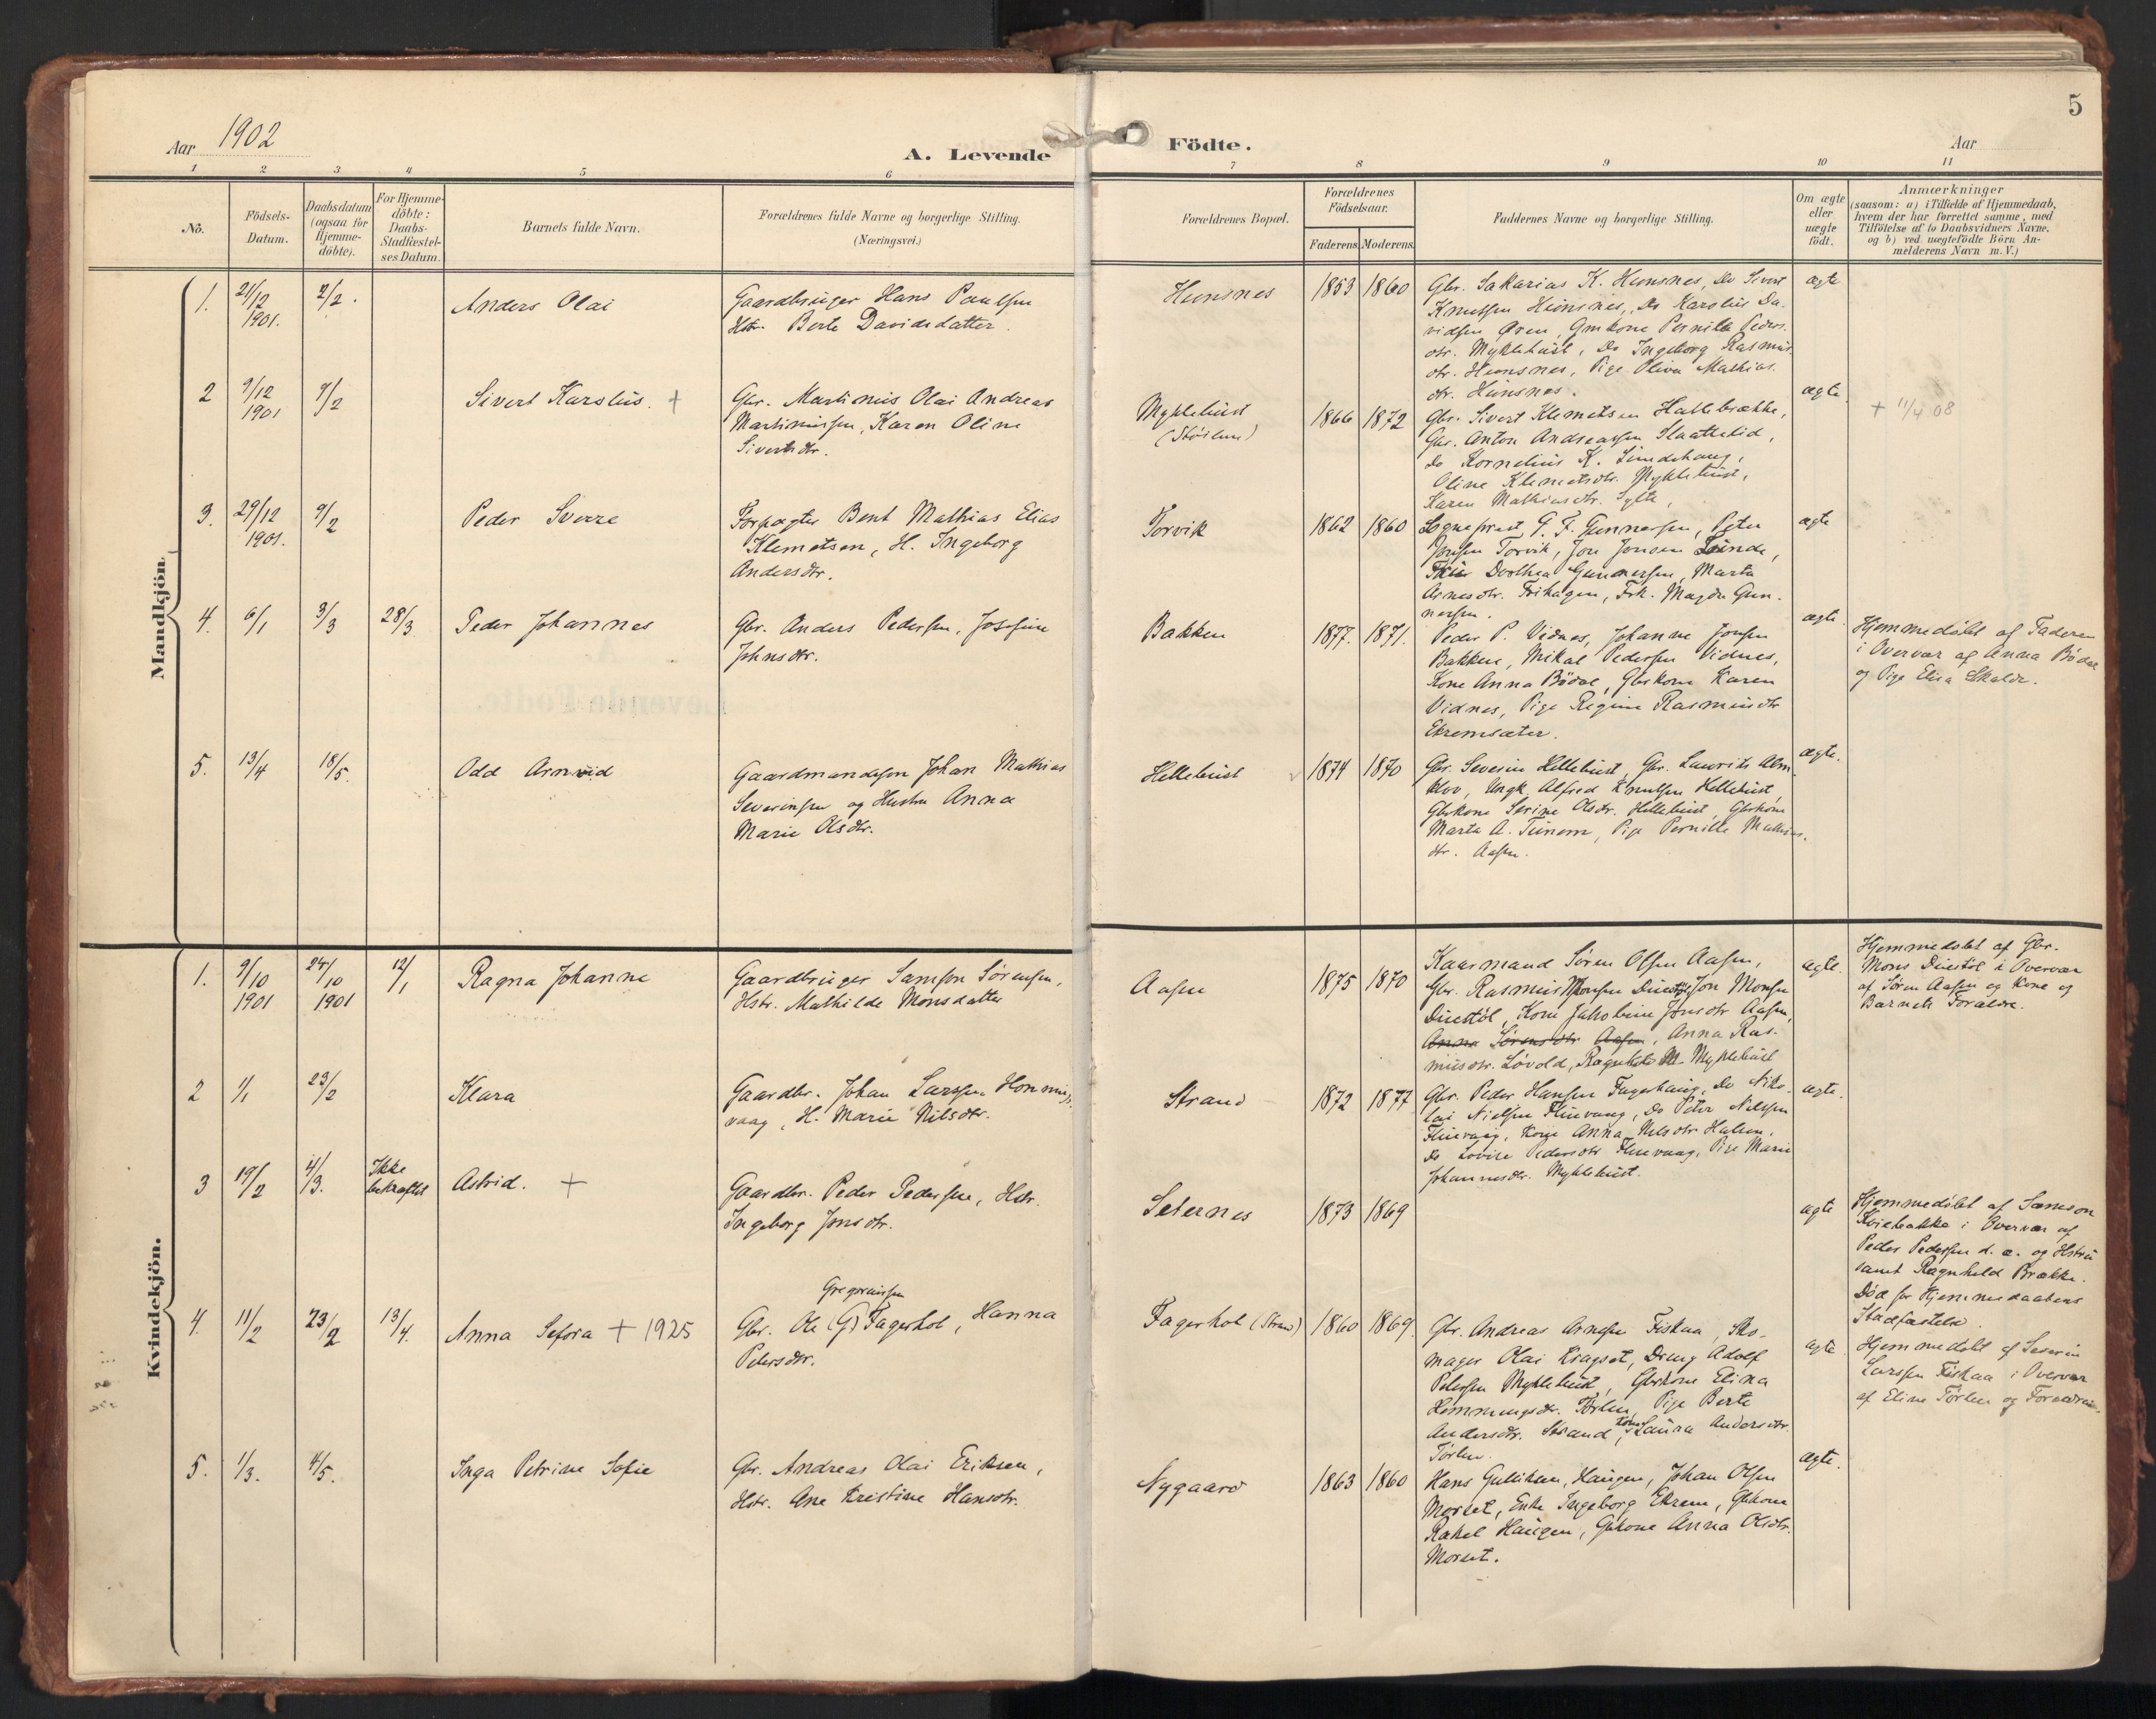 5
Aar 1902
A. Levende
Födte.
Aar
1 2 3 4 5 6
7 8 9 10 11
No.
Födsels-
Datum.
Daabsdatum
(ogsaa for
Hjemme-
döbte).
For Hjemme-
döbte:
Daabs-
Stadfæstel-
ses Datum.
Barnets fulde Navn.
Forældrenes fulde Navne og borgerlige Stilling.
(Næringsvei.)
Forældrenes Bopæl.
Forældrenes
Födselsaar.
Faderens. Moderens.
Faddernes Navne og borgerlige Stilling.
Om ægte
eller
uægte
födt.
Anmærkninger
(saasom: a) i Tilfælde af Hjemmedaab,
hvem der har forrettet samme, med
Tilföielse af to Daabsvidners Navne,
og b) ved uægtefödte Börn An-
melderens Navn m. V.)
Mandkjön.
1. 21/12 1901. 2/2. Anders Olai
Gaardbruger Hans Paulsen
Hstr. Berte Davidsdatter.
Hunsnes 1853 1860
Gbr. Sakarias K. Hunsnes, Do Sivert
Knutsen Hunsnes, Do Karolus Da-
vidsen Øren, Gmkone Pernille Peders-
dtr. Myklebust, Do Ingeborg Rasmus-
dtr. Hunsnes, Pige Oliva Mathias-
dtr. Hunsnes.
ægte
2 9/12 1901 9/2 Sivert Karolus. +
Gbr. Martinus Olai Andreas
Martinusen, Karen Oline
Sivertsdtr.
Myklebust
1866 1872
Gbr. Sivert Klemetsen Hallebrække,
Gbr. Anton Andreassen Slaattelid,
Do Kornelius K. Lindehaug,
Oline Klemetsdtr. Myklebust,
Karen Mathiasdtr. Sylte,
ægte.
+ 11/4 08
3. 29/12 1901. 9/2 Peder Sverre
Forpagter Bent Mathias Elias
Klemetsen, H. Ingeborg
Andersdtr.
Torvik 1862 1860
Sogneprest G. F. Gunnersen, Peter
Jonsen Torvik, Jon Jonsen Lunde,
Dorthea Gunnersen, Marta
Arnesdtr. Frihagen, Frk. Magda Gun-
nersen.
ægte
4. 6/1 3/3 28/3 Peder Johannes
Gbr. Anders Pedersen, Josefine
Johnsdtr.
Bakken 1877. 1871.
Peder P. Vidnes, Johanne Jonsen
Bakken, Mikal Pedersen Vidnes,
Kone Anna Bödal, Gbrkone Karen
Vidnes, Pige Regine Rasmusdtr
Ekremsæter.
ægte.
Hjemmedöbt af Faderen
i Overvær af Anna Bödal
og Pige Elisa
5. 13/4 18/5. Odd Arnvid
Gaardmandssøn Johan Mathias
Severinsen og Hustru Anna
Marie Olsdtr.
Hellebust 1874 1870
Gbr. Severin Hellebust, Gbr. Laurits Alm-
klov, Ungk. Alfred Knutsen Hellebust,
Gbrkone Serine Olsdtr. Hellebust, Gbrkone
Marta A. Tunem, Pige Pernille Mathias-
dtr. Aasen.
ægte.
Kvindekjön.
1. 9/10 1901 24/10 1901 12/1 Ragna Johanne
Gaardbruger Samson Sørensen,
Hstr. Mathilde Monsdatter
Aasen 1875 1870
Kaarmand Søren Olsen Aasen,
Gbr. Rasmus Monsen Duestøl, Jon Monsen
Duestøl, Kone Jakobine Jonsdtr Aasen,
Anna Sørensdtr Aasen, Anna Ras-
musdtr. Løvold, Ragnhild M. Myklebust
ægte.
Hjemmedøbt af Gbr.
Mons Duestøl i Overvær
af Søren Aasen og Kone og
Barnets Forældre.
2 1/1 23/2 Klara
Gaardbr. Johan Larsen Honnings-
vaag, H. Marie Nilsdtr.
Strand 1872 1877
Gbr. Peder Hansen Fagerhaug, Do Niko-
lai Nielsen Fluevaag, Do Peter Nielsen
Fluevaag, Kone Anna Nilsdtr Halsen,
Do Lovise Pedersdtr Fluevaag, Pige Marie
Johannesdtr. Myklebust.
ægte.
3 19/2 4/3. Ikke
bekræftet Astrid. +
Gaardbr. Peder Pedersen, Hstr.
Ingeborg Jonsdtr.
Seternes 1873 1869
ægte
Hjemmedøbt af Samson
Kviebakke i Overvær af
Peder Pedersen d. æ. og Hstru
samt Ragnhild Brække.
Død før Hjemmedaabens
Stadfæstelse.
4. 11/2 23/2 13/4. Anna Sefora + 1925
Gregoriussen
Gbr. Ole (G) Fagerhol, Hanna
Petersdtr.
Fagerhol (Strand) 1860 1869.
Gbr. Andreas Arnesen Fiskaa, Sko-
mager Olai Kragset, Dreng Adolf
Petersen Myklebust, Gbrkone Elina
Hemmingsdtr. Tørlen, Pige Berte
Andersdtr. Strand, Kone Laura Andersdtr.
Tørlen.
ægte
Hjemmedøbt af Severin
Larssen Fiskaa i Overvær
af Eline Tørlen og Forældrene.
5. 1/3. 4/5. Inga Petrine Sofie
Gbr. Andreas Olai Eriksen,
Hstr. Ane Kristine Hansdtr.
Nygaard 1863 1860
Hans Gulliksen Haugen, Johan Olsen
Morset, Enke Ingeborg Ekrem, Gbkone
Rakel Haugen, Gbkone Anna Olsdtr.
Morset.
ægte.